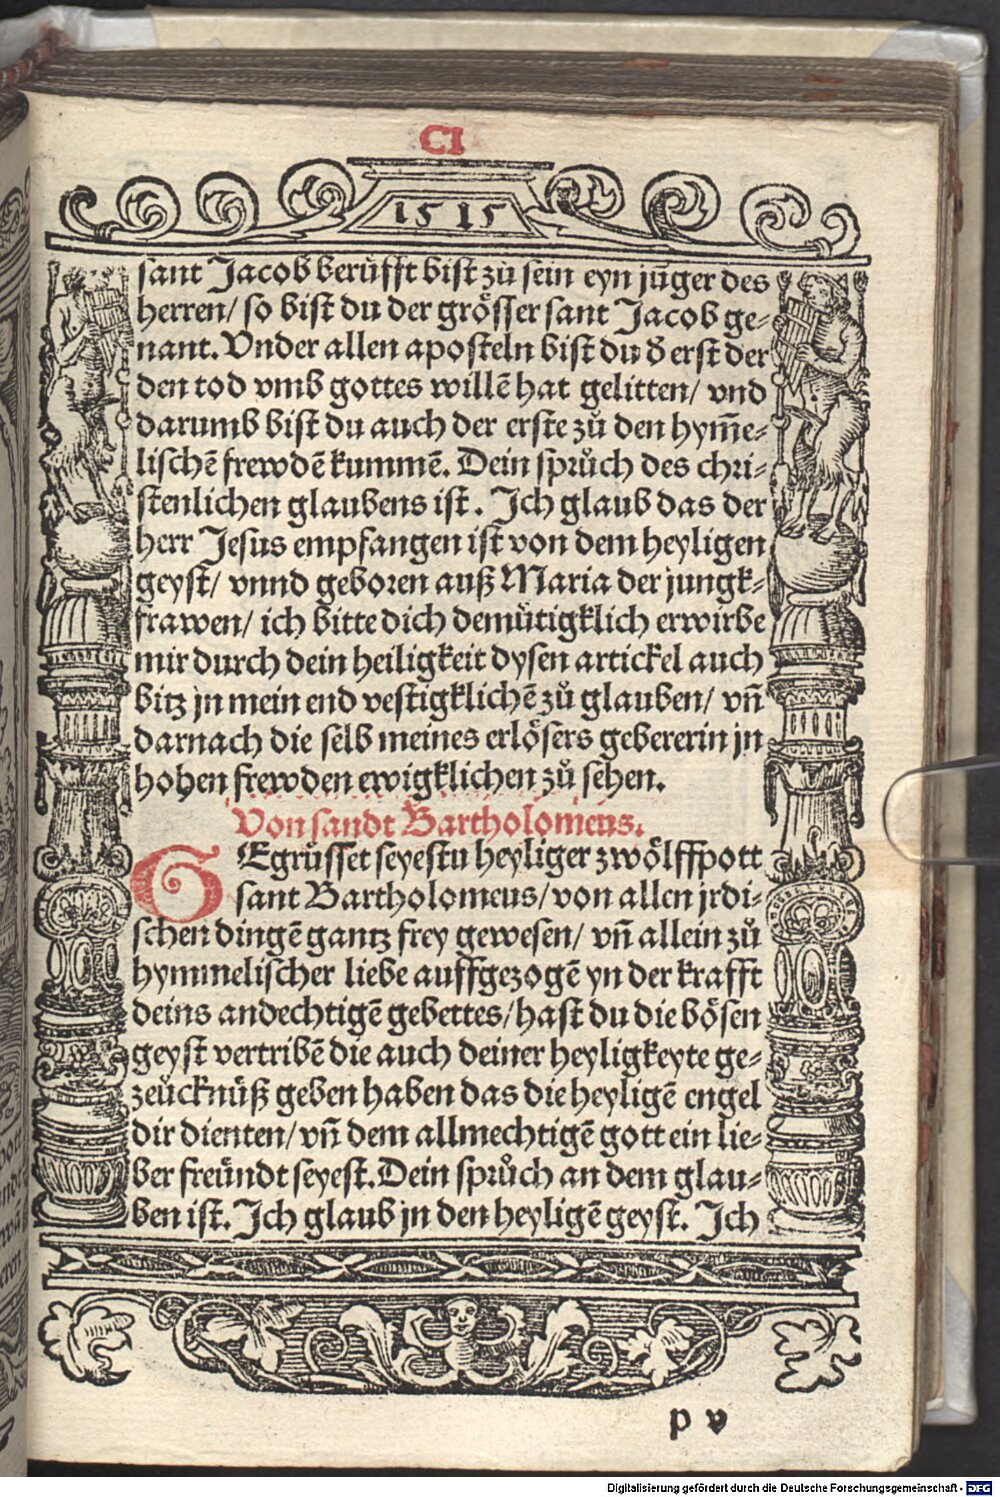 CI
1515
sant Jacob berůfft bist zů sein eyn jũger des
herren/ so bist du der grösser sant Jacob ge⸗
nant. Vnder allen aposteln bist du d̕ erst der
den tod vmb gottes willẽ hat gelitten/ vnd
darumb bist du auch der erste zů den hym̃e⸗
lischẽ frewdẽ kummẽ. Dein sprůch des chri⸗
stenlichen glaubens ist. Ich glaub das der
herr Jesus empfangen ist von dem heyligen
geyst/ vnnd geboren auß Maria der jungk⸗
frawen/ ich bitte dich demütigklich erwirbe
mir durch dein heiligkeit dysen artickel auch
bitz jn mein end vestigklichẽ zů glauben/ vñ
darnach die selb meines erlösers gebererin jn
hohen frewden ewigklichen zů sehen.
Von sandt Bartholomeus.
GEgrüsset seyestu heyliger zwölffpott
sant Bartholomeus/ von allen jrdi⸗
schen dingẽ gantz frey gewesen/ vñ allein zů
hymmelischer liebe auffgezogẽ yn der krafft
deins andechtigẽ gebettes/ hast du die bösen
geyst vertribẽ die auch deiner heyligkeyte ge⸗
zeücknüß geben haben das die heyligẽ engel
dir dienten/ vñ dem allmechtigẽ gott ein lie⸗
ber freündt seyest. Dein sprůch an dem glau⸗
ben ist. Ich glaub jn den heyligẽ geyst. Ich
p v
Digitalisierung gefördert durch die Deutsche Forschungsgemeinschaft - DFG